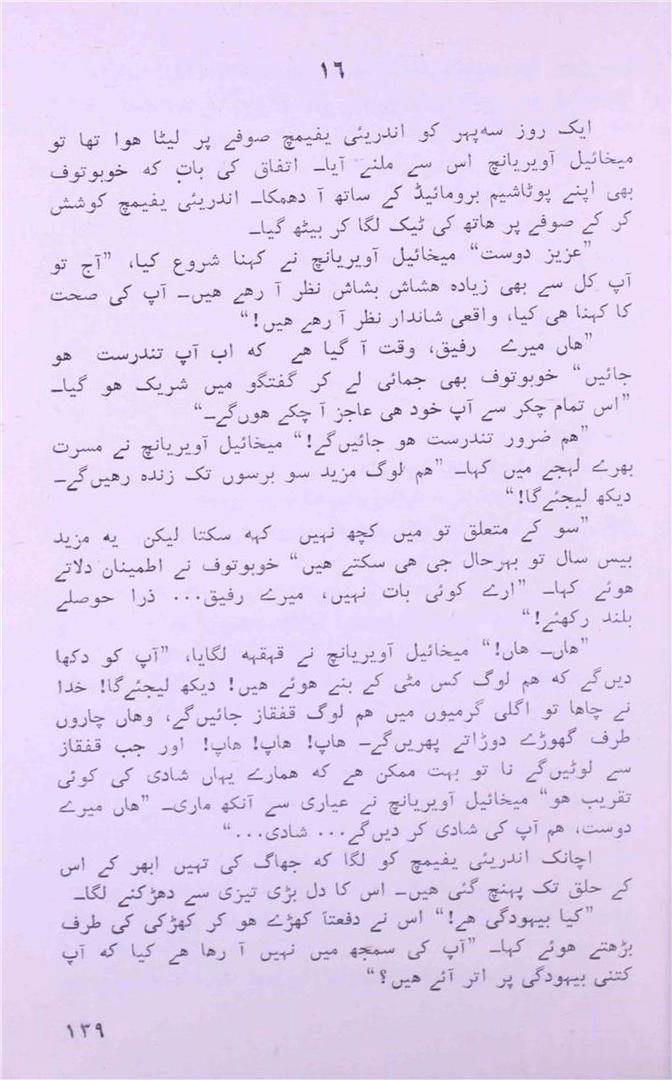 ۱۶
ایک روز سہ پہر کو اندریئی یفیمچ صوفے پر لیٹا ہوا تھا تو
میخائیل آویریانچ اس سے ملنے آیا۔ اتفاق کی بات کہ خوبوتوف
بھی اپنے پوٹاشیم برومائیڈ کے ساتھ آ دھمکا۔ اندریئی یفیمچ کوشش
کر کے صوفے پر ہاتھ کی ٹیک لگا کر بیٹھ گیا۔
”عزیز دوست“ میخائیل آویریانچ نے کہنا شروع کیا، ”آج تو
آپ کل سے بھی زیادہ ہشاش بشاش نظر آ رہے ہیں۔ آپ کی صحت
کا کہنا ہی کیا، واقعی شاندار نظر آ رہے ہیں!“
”ہاں میرے رفیق، وقت آ گیا ہے کہ اب آپ تندرست ہو
جائیں“ خوبوتوف بھی جمائی لے کر گفتگو میں شریک ہو گیا۔
”اس تمام چکر سے آپ خود ہی عاجز آ چکے ہوں گے۔“
”ہم ضرور تندرست ہو جائیں گے!“ میخائیل آویریانچ نے مسرت
بھرے لہجے میں کہا۔ ”ہم لوگ مزید سو برسوں تک زندہ رہیں گے۔
دیکھ لیجئے گا!“
”سو کے متعلق تو میں کچھ نہیں کہہ سکتا لیکن یہ مزید
بیس سال تو بہرحال جی ہی سکتے ہیں“ خوبوتوف نے اطمینان دلاتے
ہوئے کہا۔ ”ارے کوئی بات نہیں، میرے رفیق... ذرا حوصلے
بلند رکھئے!“
”ہاں۔ ہاں!“ میخائیل آویریانچ نے قہقہہ لگایا، ”آپ کو دکھا
دیں گے کہ ہم لوگ کس مٹی کے بنے ہوئے ہیں! دیکھ لیجئے گا! خدا
نے چاہا تو اگلی گرمیوں میں ہم لوگ قفقاز جائیں گے، وہاں چاروں
طرف گھوڑے دوڑاتے پھریں گے۔ ہاپ! ہاپ! ہاپ! اور جب قفقاز
سے لوٹیں گے نا تو بہت ممکن ہے کہ ہمارے یہاں شادی کی کوئی
تقریب ہو“ میخائیل آویریانچ نے عیاری سے آنکھ ماری۔ ”ہاں میرے
دوست، ہم آپ کی شادی کر دیں گے... شادی...“
اچانک اندریئی یفیمچ کو لگا کہ جھاگ کی تہیں ابھر کے اس
کے حلق تک پہنچ گئی ہیں۔ اس کا دل بڑی تیزی سے دھڑکنے لگا۔
”کیا بیہودگی ہے!“ اس نے دفعتاً کھڑے ہو کر کھڑکی کی طرف
بڑھتے ہوئے کہا۔ ”آپ کی سمجھ میں نہیں آ رہا ہے کیا کہ آپ
کتنی بیہودگی پر اتر آئے ہیں؟“
۱۳۹